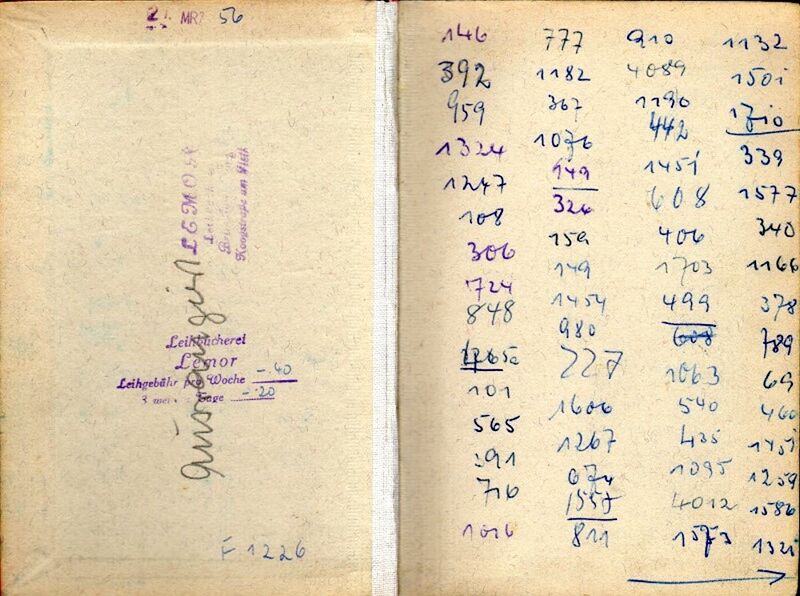 21. MRZ 56
LEMOR
Koogstraße am Fleth
ausrangiert
Leihbücherei
Lemor
Leihgebühr pro Woche -.40
3 Tage -.20
F 1226
146 777 910 1132
392 1182 4089 1501
959 367 1190 1710
442
1324 1076 1451 339
1247 149 608 1577
108 324 406 340
306 159 1703 1166
724 149 499 378
848 1454 608 789
980
1265a 227 1063 69
101 1606 540 460
565 1267 435 1451
391 674 1095 1259
716 1557 4012 1586
1016 811 1573 1321